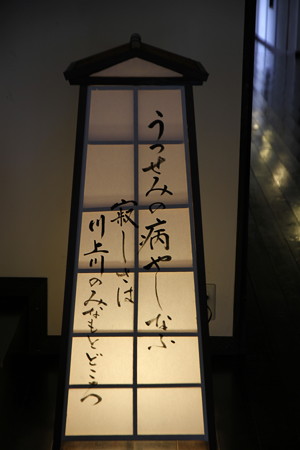 うつせみの病やしなふ
寂しさは
川上川のみなもとどころ